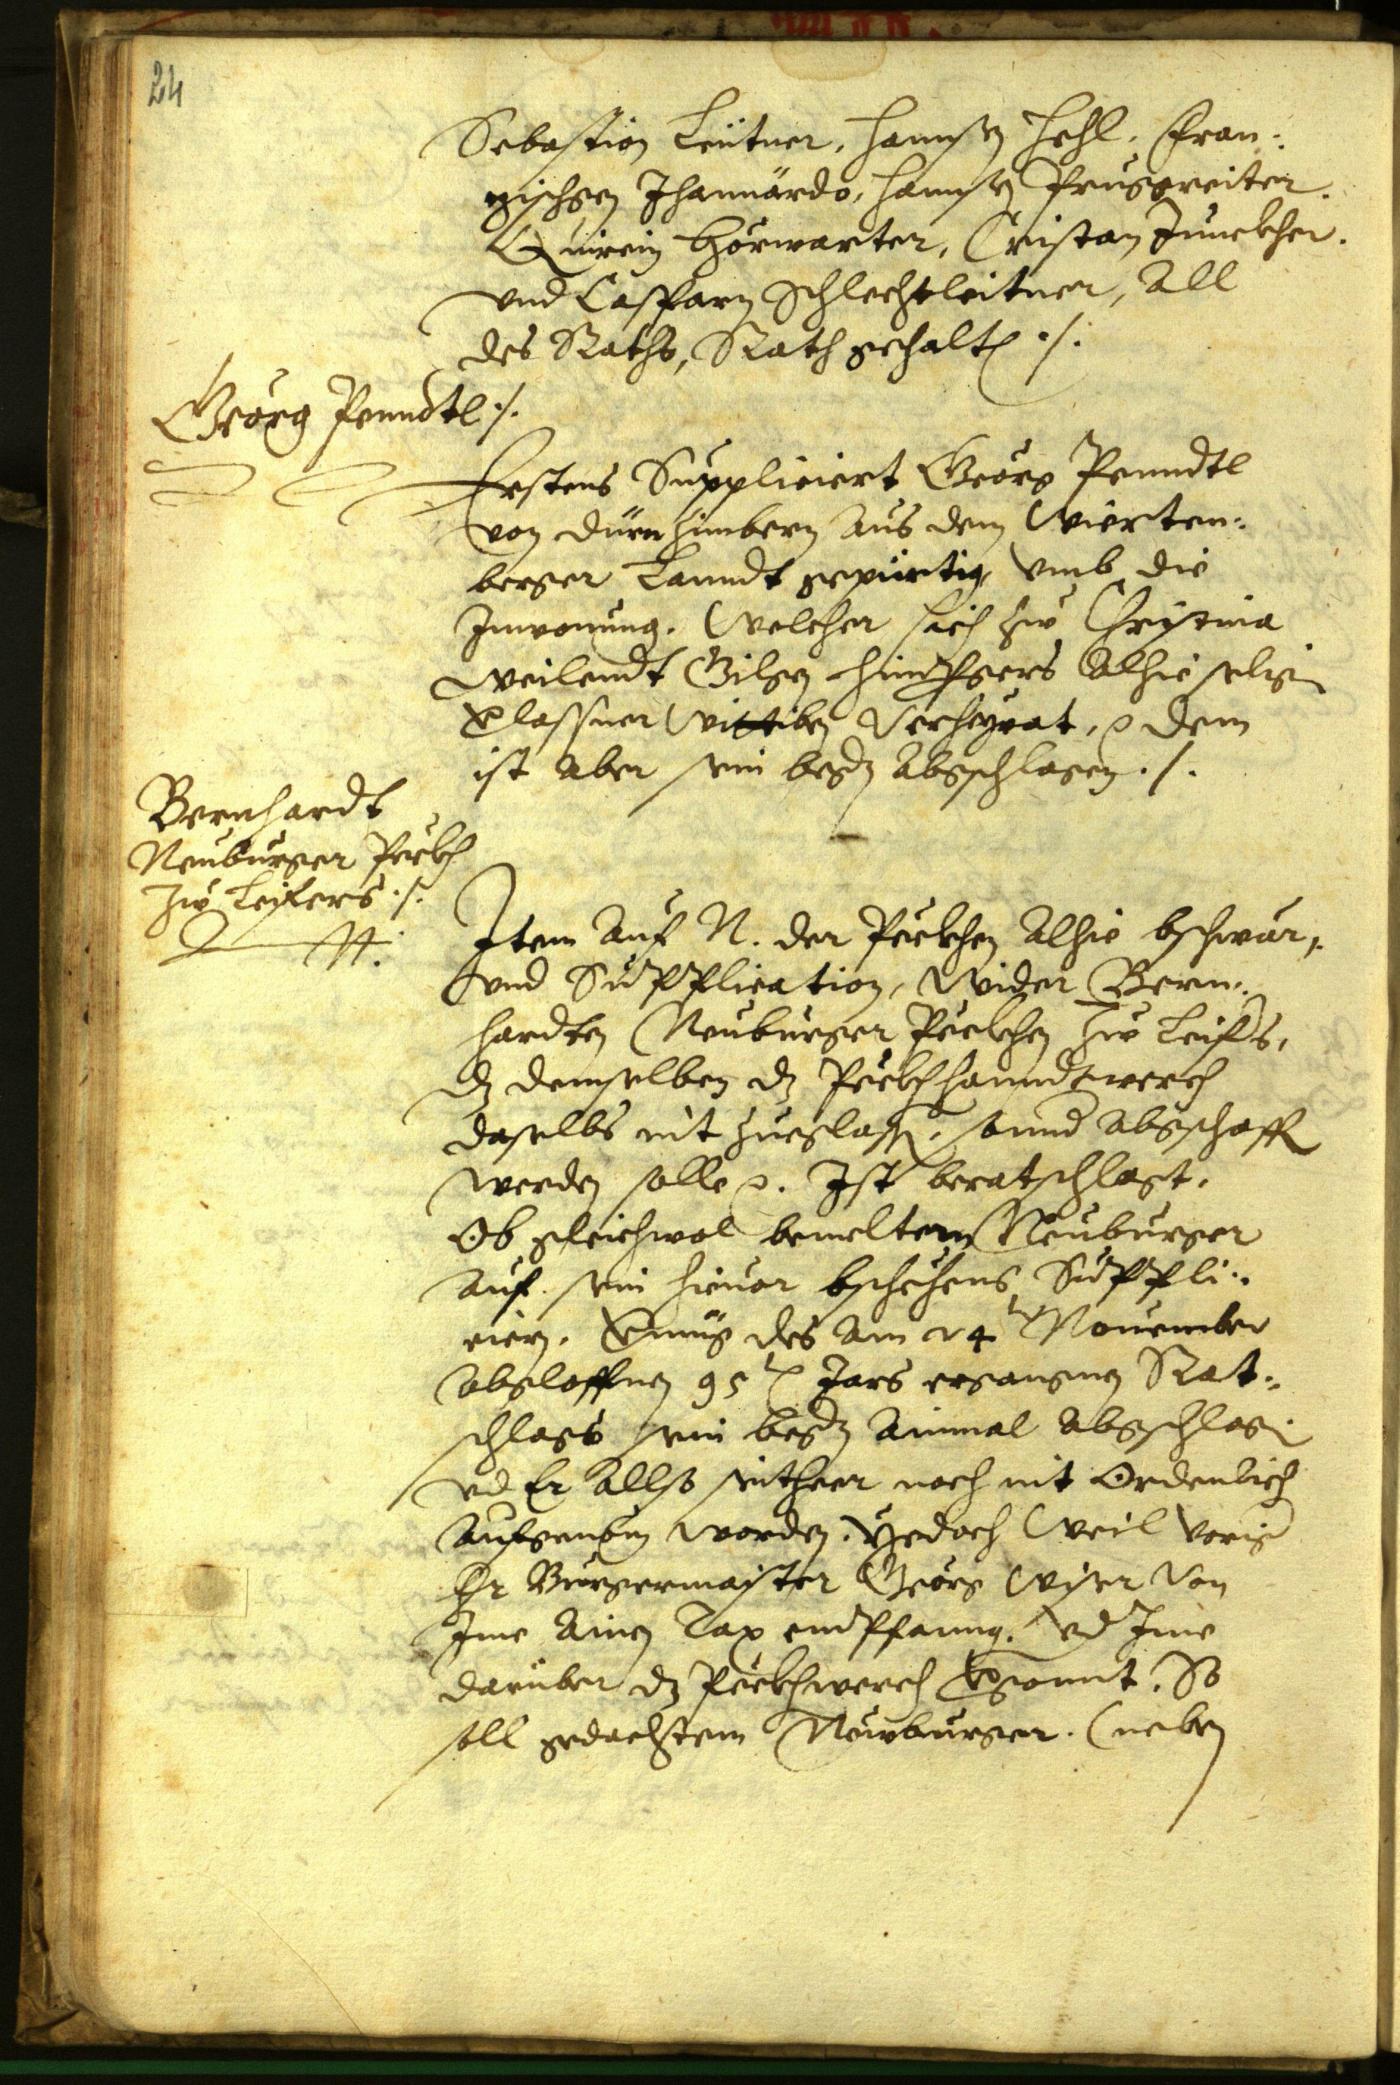 24
Sebastian Leutner, Hannsen Hehl, Fran¬
zischgen Jhanuärdo, Hannsen Prugreiter.
Quirein Hörwarter, Cristan Junckher.
vnd Casparn Schlechtleitner, All
des Raths, Rath gehalten ./.
Georg Penndtl ./.
Erstens Suppliciert Georg Penndtl
von aus dem Wierten¬
berger Lanndt gepürtig, vmb die
Inwonung. Welcher sich zw Christina
weilendt Gilgen Alhie selig
verlassner Wittiben Verheyrat, dem
ist aber sein begern Abgschlagen ./.
Bernhardt
Neuburger Peckh
zw Leifers ./.
Item auf N. der Peckhen Alhie bschwär,
vnd Supplication, Wider Bern¬
hardten Neuburger Peckhen zw Leifers,
dz demselben dz Peckhhanndtwerch
daselbs nit zuegelassen, sonnder abgschafft
werden solle. Ist beratschlagt,
Ob gleichwol bemeltem Neuburger
auf sein hieuor bschehens Suppli¬
ciern, vermüg des am 24ten Nouember
abgeloffnen 95ten Jars ergangnen Rat¬
schlags sein begern ainmal abgschlagen
vnd Er Allso seither noch nit Ordenlich
aufgenomen worden. Yedoch Weil voriger
Hr Burgermaister Georg Wiser Von
Ime Ainen Tax emdpfanng. vnd Ime
darüber dz Peckhwerch vergonnt. So
soll gedachtem Newburger. (neben